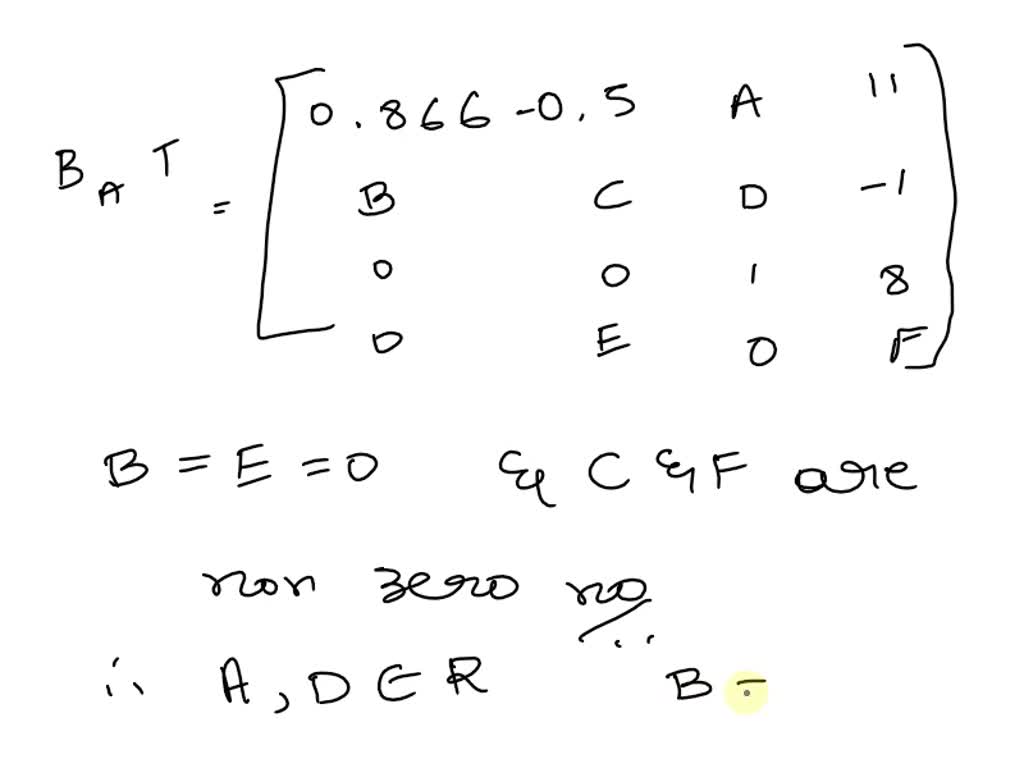 B_A T = [ 0.866 -0.5 A 11
B C D -1
0 0 1 8
D E 0 F ]
B = E = 0 & C & F are
non zero no
∴ A, D ∈ R B =